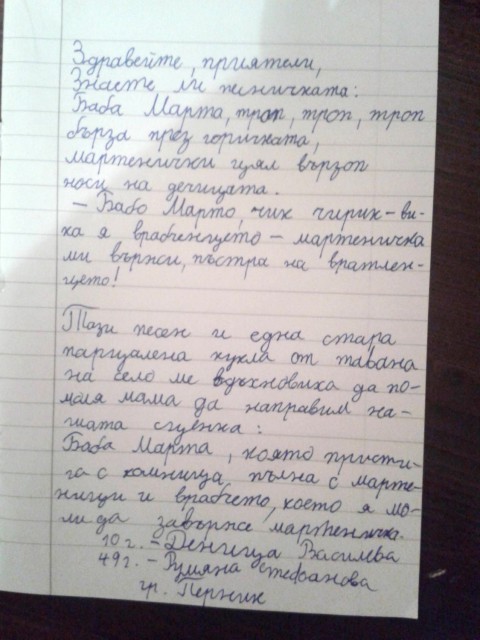 Здравейте, приятели,
Знаете ли песничката:
Баба Марта, троп, троп, троп
бърза през горичката,
мартенички цял вързоп
носи на дечицата.
– Бабо Марто, чик чирик – ви-
ка я врабченцето – мартеничка
ми вържи, пъстра на вратлен-
цето!
Тази песен и една стара
парцалена кукла от тавана
на село ме вдъхновиха да по-
моля мама да направим на-
шата сценка:
Баба Марта, която присти-
га с кошница пълна с марте-
ници и врабчето, което я мо-
ли да завърже мартеничка.
10 г. – Деница Василева
49 г. – Румяна Стефанова
гр. Перник